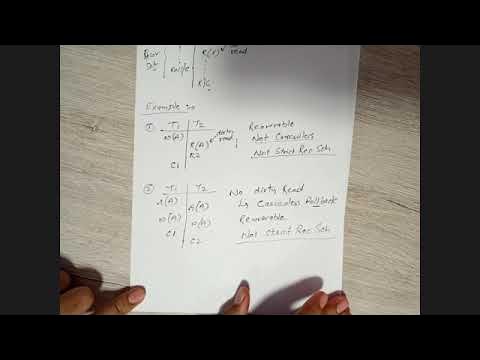 R(x)
read
R/C
Example :-
① T1 T2
W(A)
R(A) dirty read
C1
Recoverable
Not Cascadless
Not Strict Rec Sch
② T1 T2
R(A)
R(A)
W(A)
W(A)
C1
C2
No dirty Read
↳ Cascadless Rollback
Recoverable
Not Strict Rec Sch